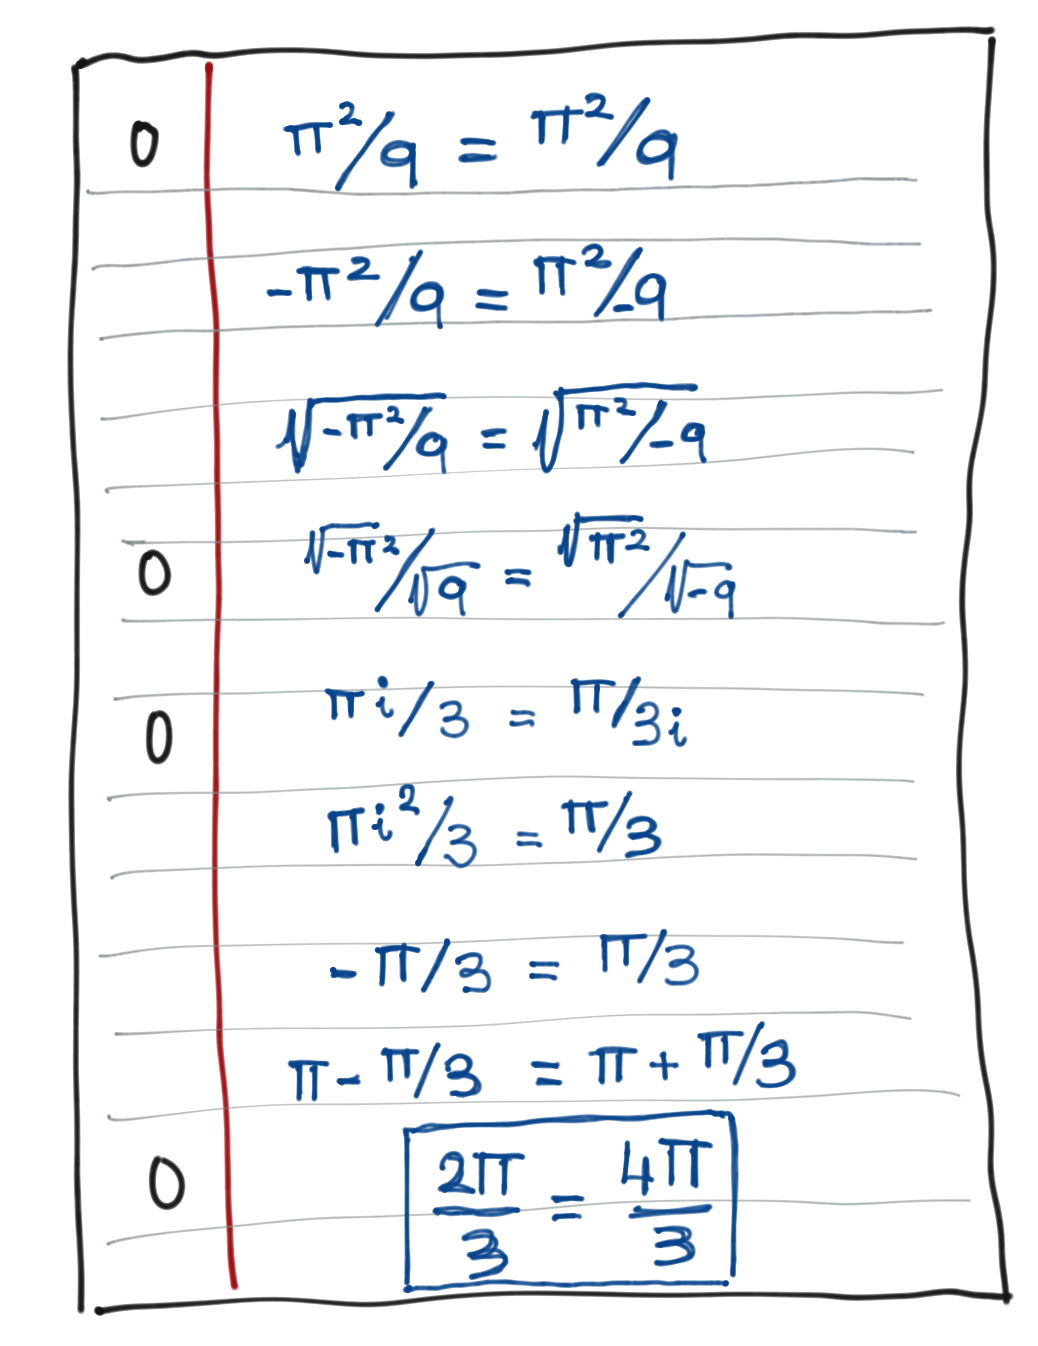 π²/9 = π²/9
-π²/9 = π²/-9
√(-π²/9) = √(π²/-9)
√(-π²)/√9 = √(π²)/√(-9)
πi/3 = π/3i
πi²/3 = π/3
-π/3 = π/3
π - π/3 = π + π/3
2π/3 = 4π/3